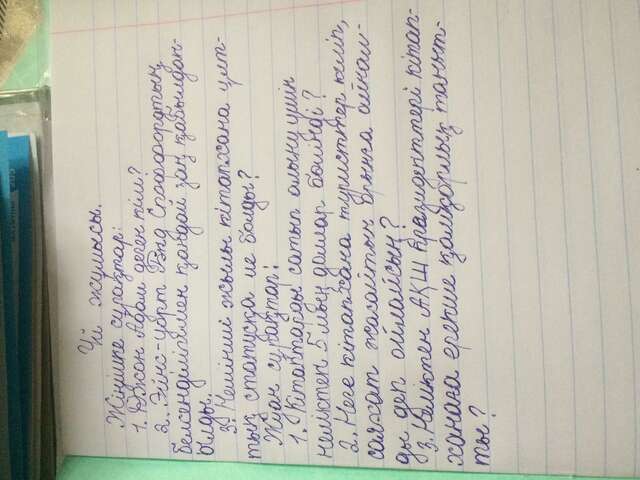 Үй жұмысы.
Жіңішке сұрақтар:
1. Джон Адам деген кім?
2. Эйнс-уорт Рэнд Споффордтың
белсенділігімен қандай заң қабылдан-
ылды.
3. Нешінші жылы кітапхана ұлт-
тық статусқа ие болды?
Жуан сұрақтар:
1. Кітаптарды сатып алыну үшін
неліктен 5 мың доллар бөлінді?
2. Неге кітапхана туристтер келіп,
саяхат жасайтын орынға айнал-
ды деп ойлайсың?
3. Неліктен АҚШ Президенттері кітап-
ханаға ерекше қамқорлық таныт-
ты?